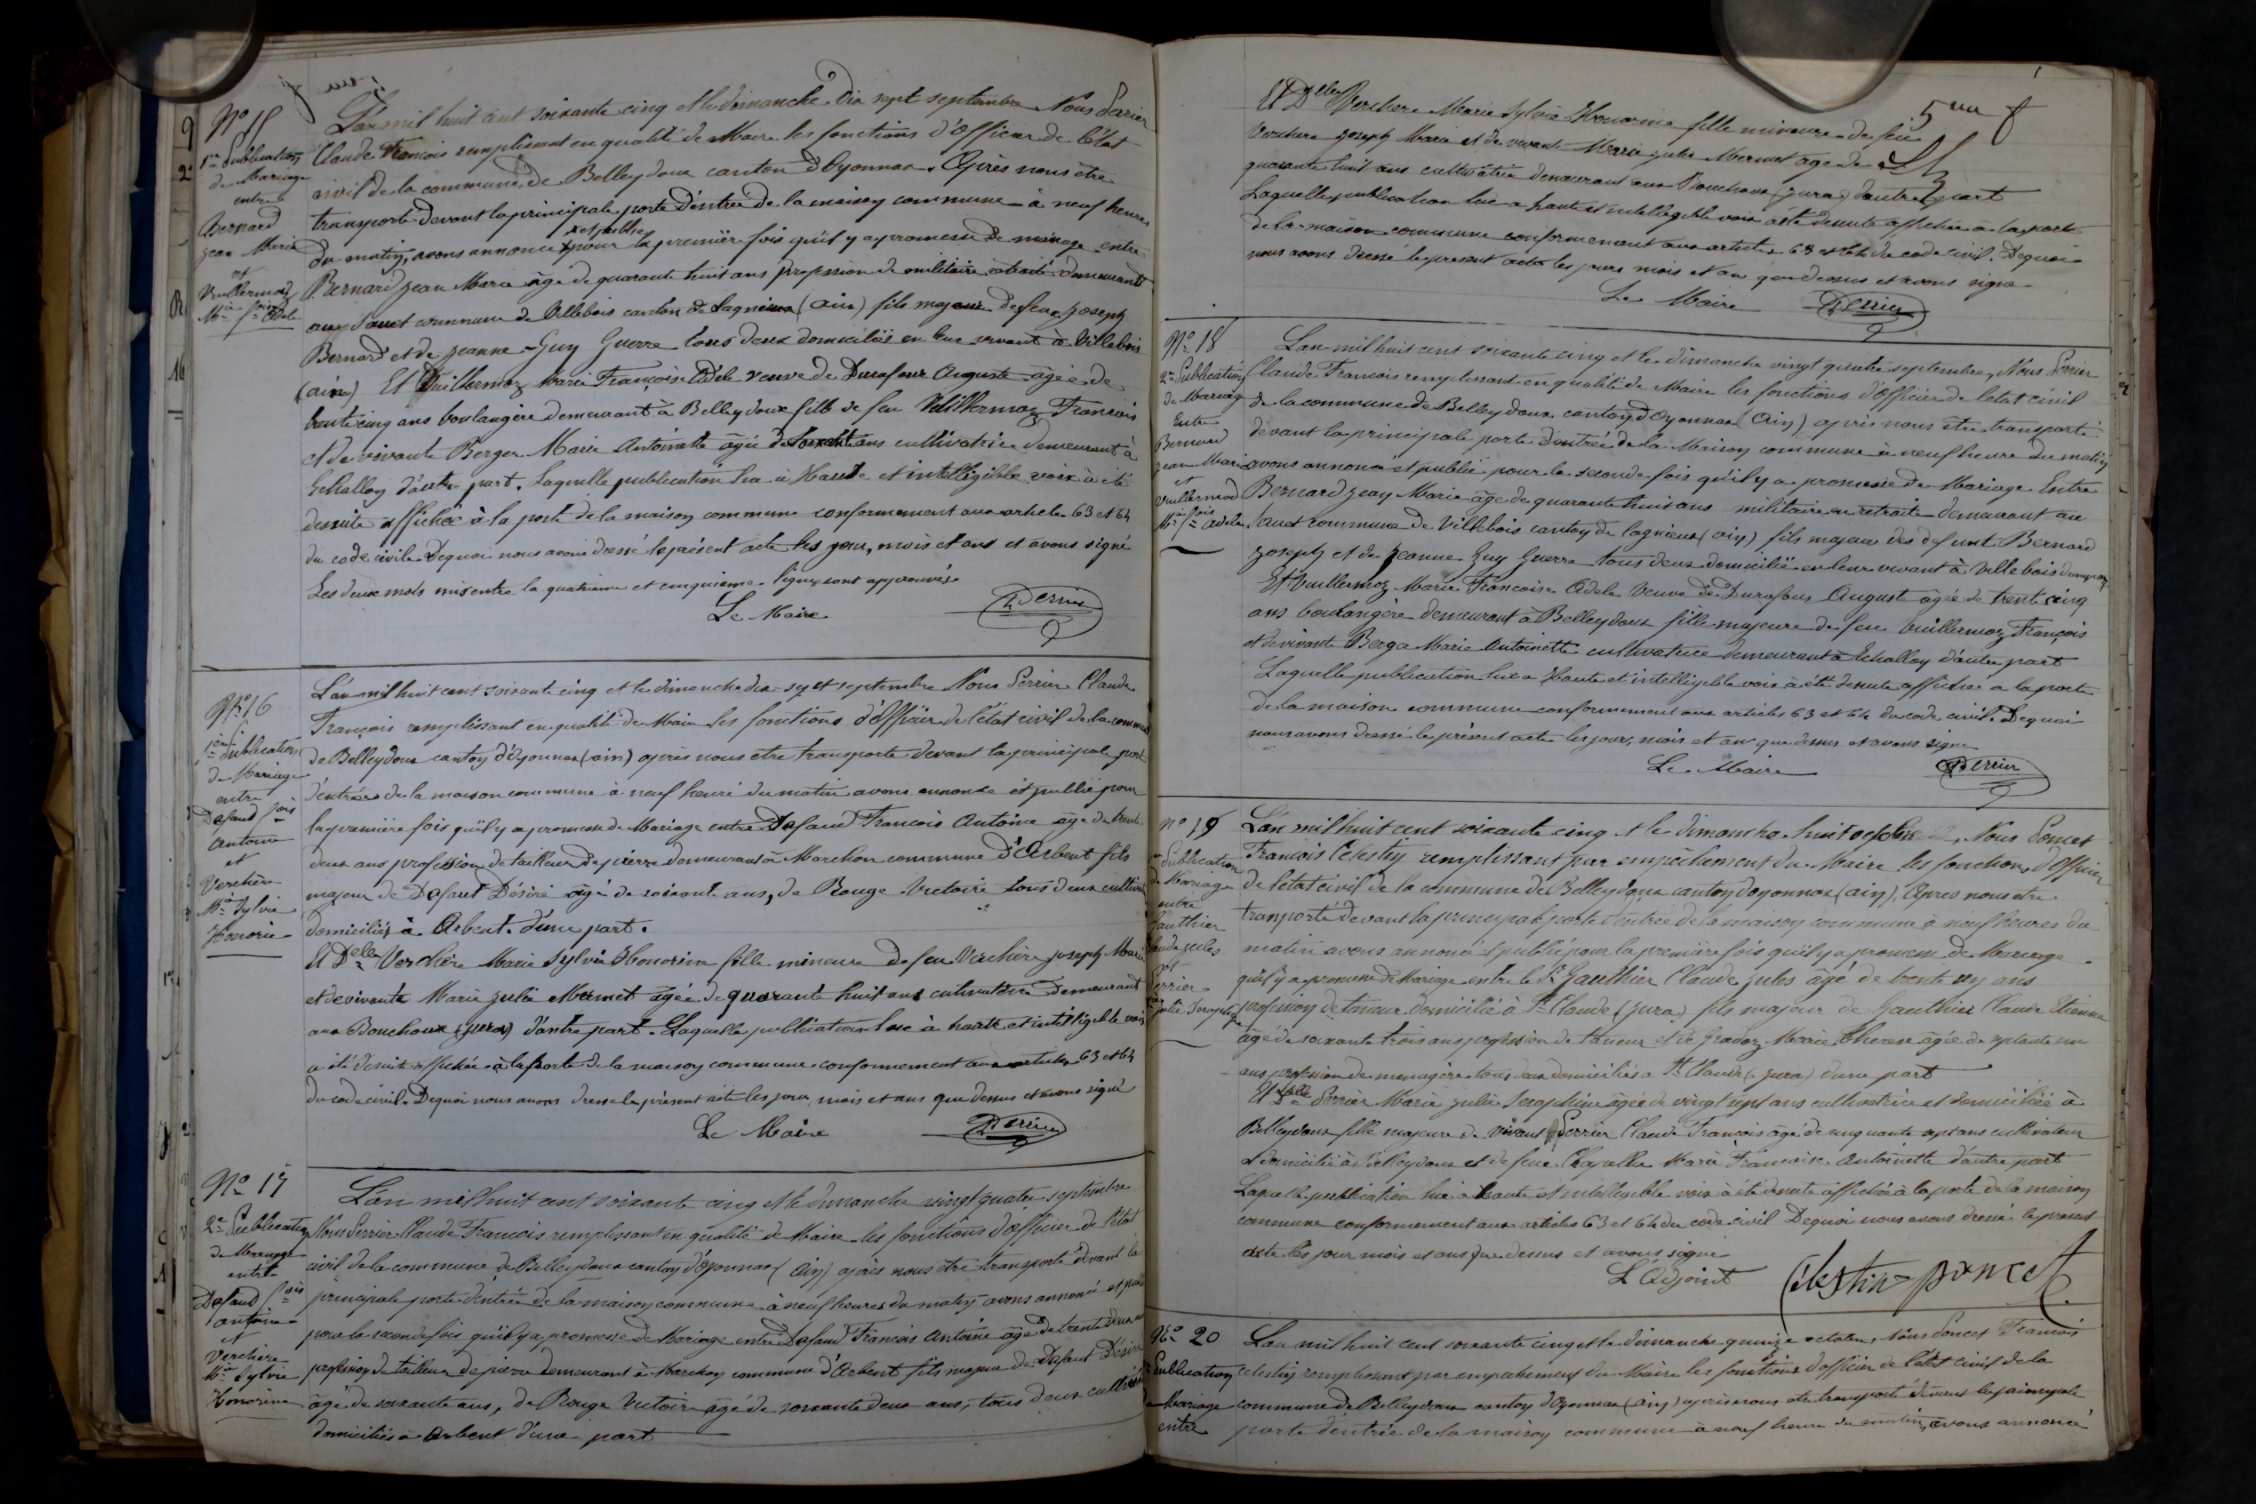 No 15
1re Publication
de Mariage
entre
Bernard
jean Marie
et
Vuillermoz
Mie fse Adele
L'an mil huit cent soixante cinq et le dimanche dix sept septembre Nous Perier
Claude François remplissant en qualité de Maire les fonctions d'officier de l'état
civil de la commune de Belleydoux canton d'Oyonnax. Après nous être
transporté devant la principale porte d'entrée de la maison commune à neuf heures
et publié
du matin, avons annoncé pour la première fois qu'il y a promesse de mariage entre
Bernard jean Marie âgé de quarante huit ans profession de militaire retraité demeurant
au Sauet commune de Villebois canton de Lagnieux (ain) fils majeur de feu joseph
Bernard et de jeanne Guy Guerre tous deux domiciliés en leur vivant à Villebois
(ain) Et Vuillermoz Marie Françoise Adele veuve de Durafour Auguste âgée de
trente cinq ans boulangère demeurant à Belleydoux fille de feu Vuillermoz François
et de vivante Berger Marie Antoinette âgée de soixante ans cultivatrice demeurant à
Echallon d'autre part. Laquelle publication lue à Haute et intelligible voix à été
desuite affichée à la porte de la maison commune conformement aux article 63 et 64
du code civile. Dequoi nous avons dressé le présent acte les jour, mois et ans et avons signé
Les deux mots mis entre la quatrieme et cinquieme ligne sont approuvés
Le Maire Perrier
No 16
1ere Publication
de Mariage
entre
Dafaud fois
antoine
et
Verchère
Mie Sylvie
Honorine
L'an mil huit cent soixante cinq et le dimanche dix-sept septembre Nous Perrier Claude
François remplissant en qualité de Maire les fonctions d'officier de l'état civil de la commune
de Belleydoux canton d'Oyonnax (ain) après nous être transporté devant la principale porte
d'entrée de la maison commune à neuf heure du matin avons annoncé et publié pour
la première fois qu'il y a promesse de Mariage entre Dafaud François Antoine âgé de trente
deux ans profession de tailleur de pierre demeurant à Marchon commune d'Arbent fils
majeur de Dafaut Désiré âgé de soixante ans, de Rouge Victoire tous deux cultivateurs
domiciliés à Arbent d'une part.
Et Delle Verchère Marie Sylvie Honorine fille mineure de feu Verchère joseph Marie
et de vivante Marie julie Mermet âgée de quarante huit ans cultivatrice demeurant
aux Bouchoux (jura) d'autre part. Laquelle publication lue à haute et intelligible voix
a été desuite affichée à la porte de la maison commune conformement aux articles 63 et 64
du code civil. Dequoi nous avons dressé le présent acte les jour, mois et ans que dessus et avons signé
Le Maire Perrier
No 17
2e Publication
de Mariage
entre
Dafaud fois
antoine
et
Verchère
Mie Sylvie
Honorine
L'an mil huit cent soixante cinq et le dimanche vingt quatre septembre
Nous Perrier Claude François remplissant en qualité de Maire les fonctions d'officier de l'état
civil de la commune de Belleydoux canton d'Oyonnax (Ain) après nous être transporté devant la
principale porte d'entrée de la maison commune à neuf heures du matin avons annoncé et publié
pour la seconde fois qu'il y a promesse de Mariage entre Dafaud François Antoine âgé de trente deux ans
profession de tailleur de pierre demeurant à Marchon commune d'Arbent fils majeur de Dafaut Désiré
âgé de soixante ans, de Rouge Victoire âgé de soixante deux ans, tous deux cultivateurs
domiciliés à Arbent d'une part
Et Delle Verchere Marie Sylvie Honorine fille mineure de feu
Verchere joseph Marie et de vivante Marie julie Mermet âgé de
quarante huit ans cultivatrice demeurant aux Bouchoux (jura) d'autre part
Laquelle publication lue a haute et intelligible voix a été desuite affichée a la porte
de la maison commune conformement aux articles 63 et 64 du code civil. Dequoi
nous avons dressé le présent acte les jours mois et an que dessus et avons signé
Le Maire Perrier
No 18
2e Publication
de Mariage
Entre
Bernard
jean Marie
et
Vuillermod
Mie fsoise Adele
L'an mil huit cent soixante cinq et le dimanche vingt quatre septembre, Nous Perrier
Claude François remplissant en qualité de Maire les fonctions d'officier de l'etat civil
de la commune de Belleydoux canton d'Oyonnax (Ain) après nous être transporté
devant la principale porte d'entrée de la Maison commune à neuf heure du matin
avons annoncé et publié pour la seconde fois qu'il y a promesse de Mariage Entre
Bernard jean Marie âgé de quarante huit ans militaire en retraite demeurant au
Sauet commune de Villebois canton de lagnieux (ain) fils majeur des defunt Bernard
joseph et de jeanne Guy Guerre tous deux domicilié en leur vivant à Villebois d'une part
Et Vuillermoz Marie Francoise Adele Veuve de Durafour August âgée de trente cinq
ans boulangère demeurant à Belleydoux fille majeure de feu Vuillermoz François
et de vivante Berger Marie Antoinette cultivatrice demeurant à Echallon d'autre part
Laquelle publication lue a Haute et intelligible voix à été desuite affichée a la porte
de la maison commune conformement aux articles 63 et 64 du code civil. Dequoi
nous avons dressé le présent acte les jour, mois et an que dessus et avons signé
Le Maire Perrier
no 19
Publication
de Mariage
entre
Gauthier
Claude jules
et
Perrier
julie Seraphie
L'an mil huit cent soixante cinq et le dimanche huit octobre, Nous Poncet
François Célestin remplissant par empêchement du Maire les fonctions d'officier
de l'etat civil de la commune de Belleydoux canton doyonnax (ain), Apres nous etre
transporté devant la principale porte d'entrée de la maison commune à neuf heures du
matin avons annoncé et publié pour la première fois qu'il y a promesse de Mariage
qu'il y a promesse de Mariage entre le Sr Gauthier Claude jules âgé de trente un ans
profession de taneur domicilié à St Claude (jura) fils majeur de Gauthier Claude Etienne
âgé de soixante trois ans profession de taneur et de Marie Therese âgée de septante un
ans profession de menagère tous deux domiciliés a St Claude (jura) d'une part
Et Delle Perrier Marie julie Seraphine âgée de vingt sept ans cultivatrice et domiciliée à
Belleydoux fille majeure de vivant Perrier Claude François âgé de cinquante sept ans cultivateur
domicilié à Belleydoux et de feue Chapelle Marie Françoise Antoinette d'autre part
Laquelle publication lue à haute et intelligible voix à été desuite affichée à la porte de la maison
commune conformement aux articles 63 et 64 du code civil Dequoi nous avons dressé le présent
acte les jour mois et ans que dessus et avons signé
L'Adjoint Célestin Poncet
No 20
Publication
Mariage
entre
L'an mil huit cent soixante cinq et le dimanche quinze octobre, Nous Poncet François
Celestin remplissant par empêchement du Maire les fonctions d'officier de l'état civil de la
commune de Belleydoux canton d'Oyonnax (ain) après nous etre transporté devant la principale
porte d'entrée de la maison commune à neuf heure du matin, avons annoncé